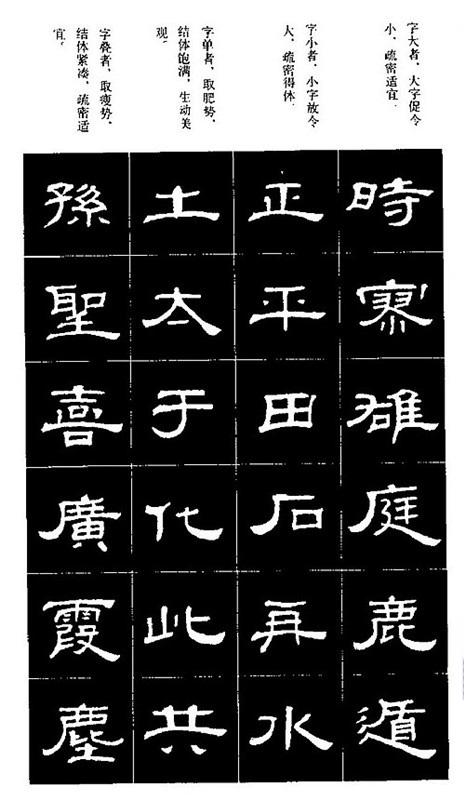 字大者，大字促令
小，疏密适宜。
字小者，小字放令
大，疏密得体。
字单者，取肥势，
结体饱满，生动美
观。
字叠者，取瘦势，
结体紧凑，疏密适
宜。
時雄庭鹿遁
正平田石再水
土太于化此共
孫聖喜廣霞塵